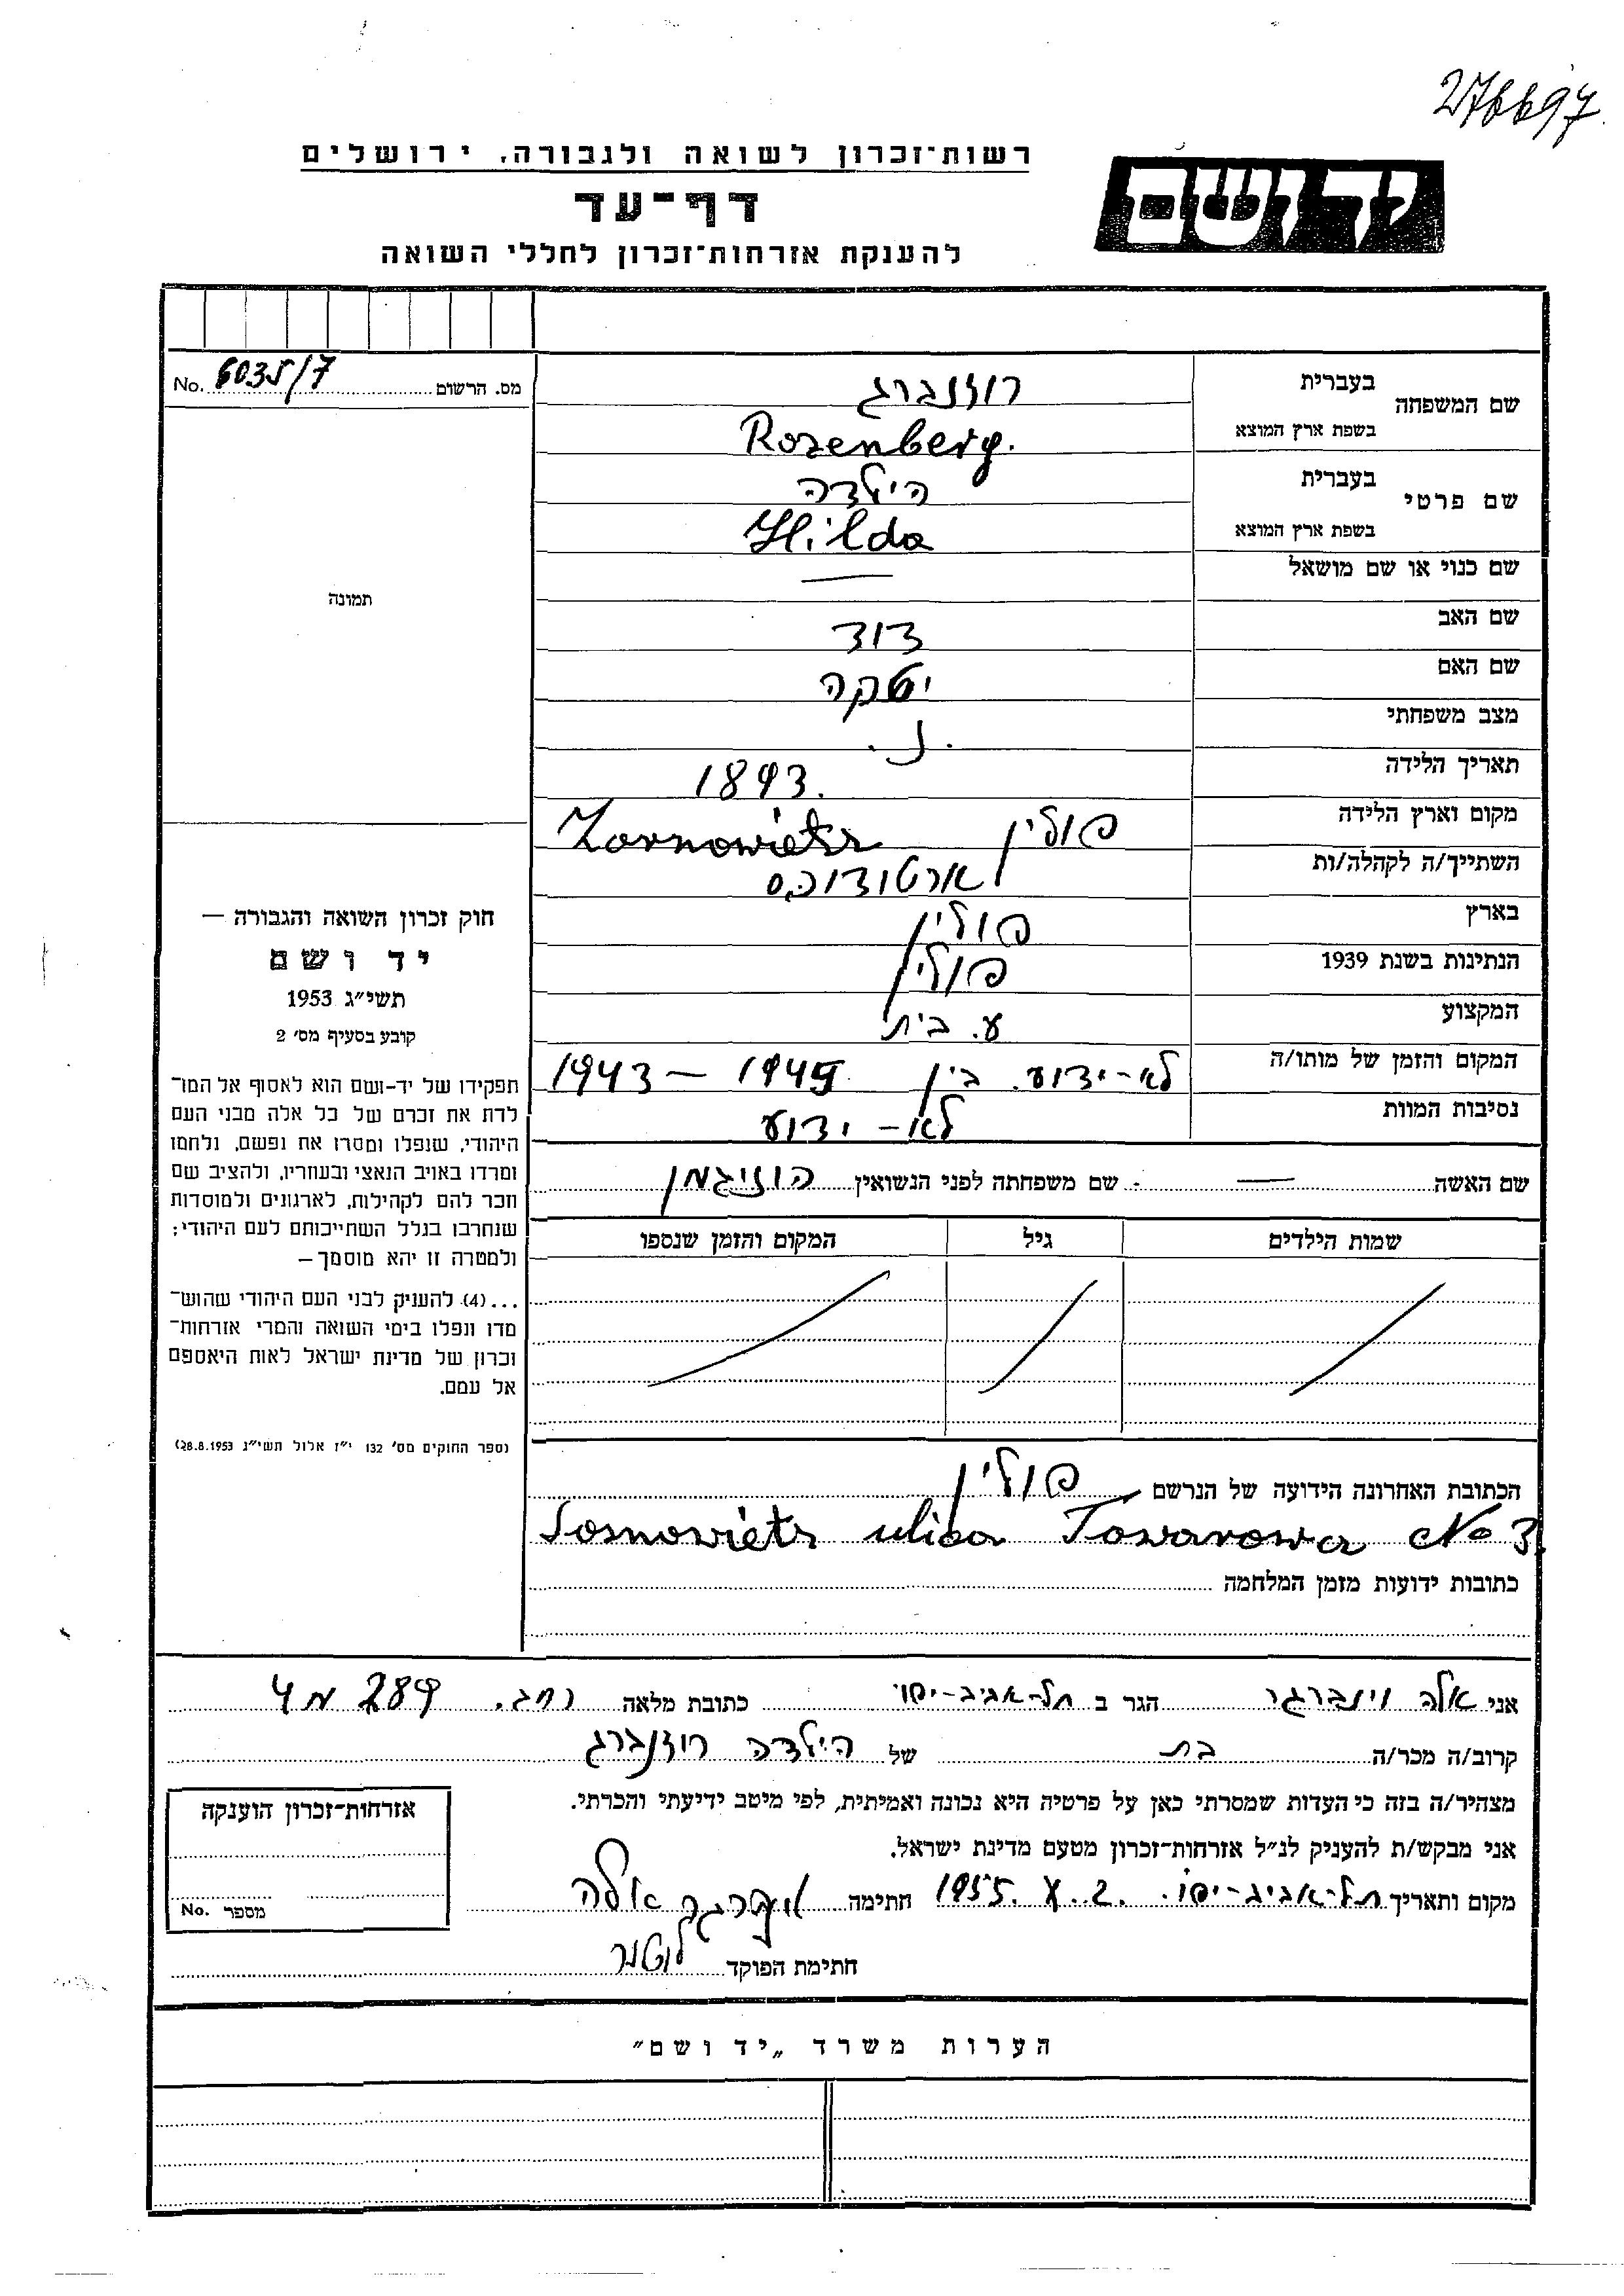 276697
רשות־זכרון לשואה ולגבורה, ירושלים
יד ושם
דף־עד
להענקת אזרחות־זכרון לחללי השואה
מס. הרשום 6035/7 No.
שם המשפחה בעברית רוזנברג
בשפת ארץ המוצא Rozenberg.
שם פרטי בעברית הילדה
בשפת ארץ המוצא Hilda
שם כנוי או שם מושאל —
תמונה
שם האב דוד
שם האם יטקה
מצב משפחתי נ.
תאריך הלידה 1893.
מקום וארץ הלידה פולין Zarnowietz
השתייך/ה לקהלה/ות
בארץ פולין
הנתינות בשנת 1939 פולין
המקצוע ע. בית
המקום והזמן של מותו/ה לא-ידוע. בין 1945 – 1943
נסיבות המוות לא-ידוע
שם האשה — שם משפחתה לפני הנשואין הוניגמן
שמות הילדים גיל המקום והזמן שנספו
חוק זכרון השואה והגבורה —
יד ושם
תשי״ג 1953
קובע בסעיף מס׳ 2
תפקידו של יד-ושם הוא לאסוף אל המו־
לדת את זכרם של כל אלה מבני העם
היהודי, שנפלו ומסרו את נפשם, נלחמו
ומרדו באויב הנאצי ובעוזריו, ולהציב שם
וזכר להם לקהילות, לארגונים ולמוסדות
שנחרבו בגלל השתייכותם לעם היהודי;
ולמטרה זו יהא מוסמך —
...(4) להעניק לבני העם היהודי שהוש־
מדו ונפלו בימי השואה והמרי אזרחות־
זכרון של מדינת ישראל לאות היאספם
אל עמם.
(ספר החוקים מס׳ 132 י״ז אלול תשי״ג 28.8.1953)
הכתובת האחרונה הידועה של הנרשם פולין
Sosnovietz ulica Towarowa No 3.
כתובות ידועות מזמן המלחמה
אני אלה וינברגר הגר ב תל-אביב-יפו כתובת מלאה רחב. 289 מ 4
קרוב/ה מכר/ה בת של הילדה רוזנברג
מצהיר/ה בזה כי העדות שמסרתי כאן על פרטיה היא נכונה ואמיתית, לפי מיטב ידיעתי והכרתי.
אני מבקש/ת להעניק לנ״ל אזרחות־זכרון מטעם מדינת ישראל.
מקום ותאריך תל-אביב-יפו. 1955 חתימה אלה
חתימת הפוקד
אזרחות־זכרון הוענקה
מספר No.
הערות משרד „יד ושם״